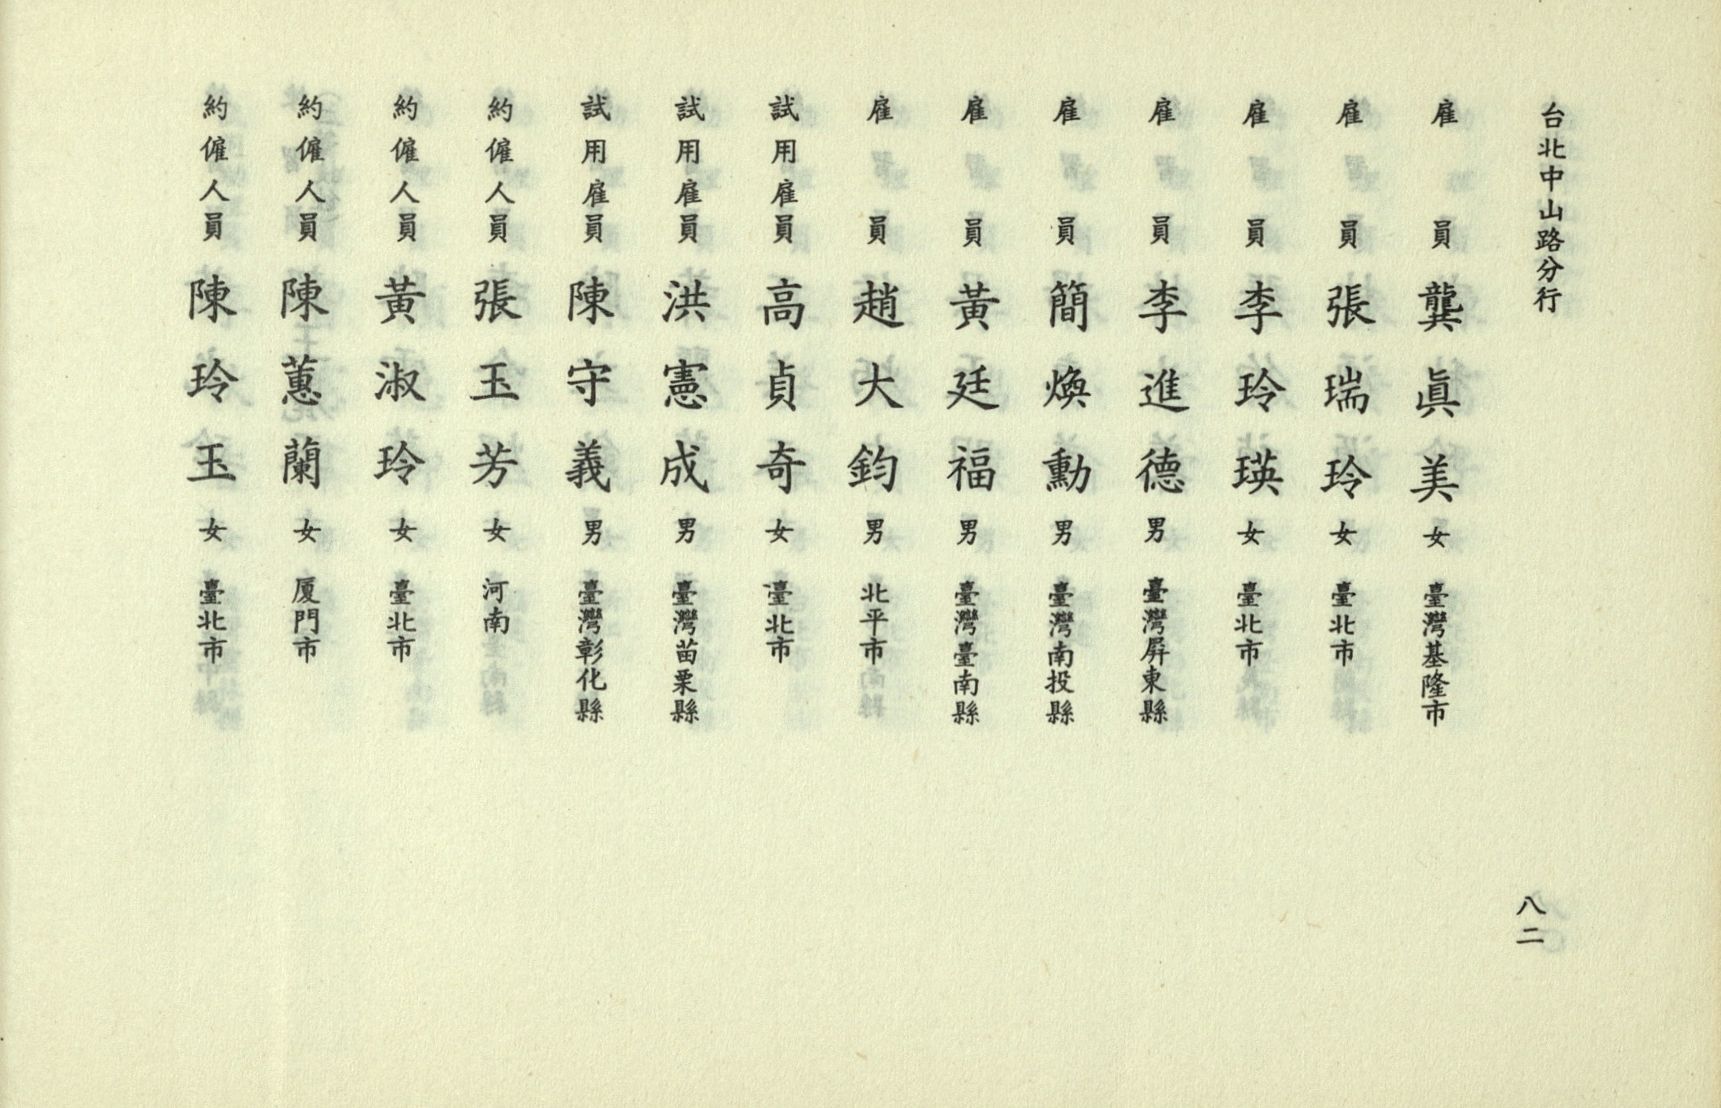 台北中山路分行
雇員 龔眞美 女 臺灣基隆市
雇員 張瑞玲 女 臺北市
雇員 李玲瑛 女 臺北市
雇員 李進德 男 臺灣屏東縣
雇員 簡煥勳 男 臺灣南投縣
雇員 黃廷福 男 臺灣臺南縣
雇員 趙大鈞 男 北平市
試用雇員 高貞奇 女 臺北市
試用雇員 洪憲成 男 臺灣苗栗縣
試用雇員 陳守義 男 臺灣彰化縣
約僱人員 張玉芳 女 河南
約僱人員 黃淑玲 女 臺北市
約僱人員 陳蕙蘭 女 厦門市
約僱人員 陳玲玉 女 臺北市
八二